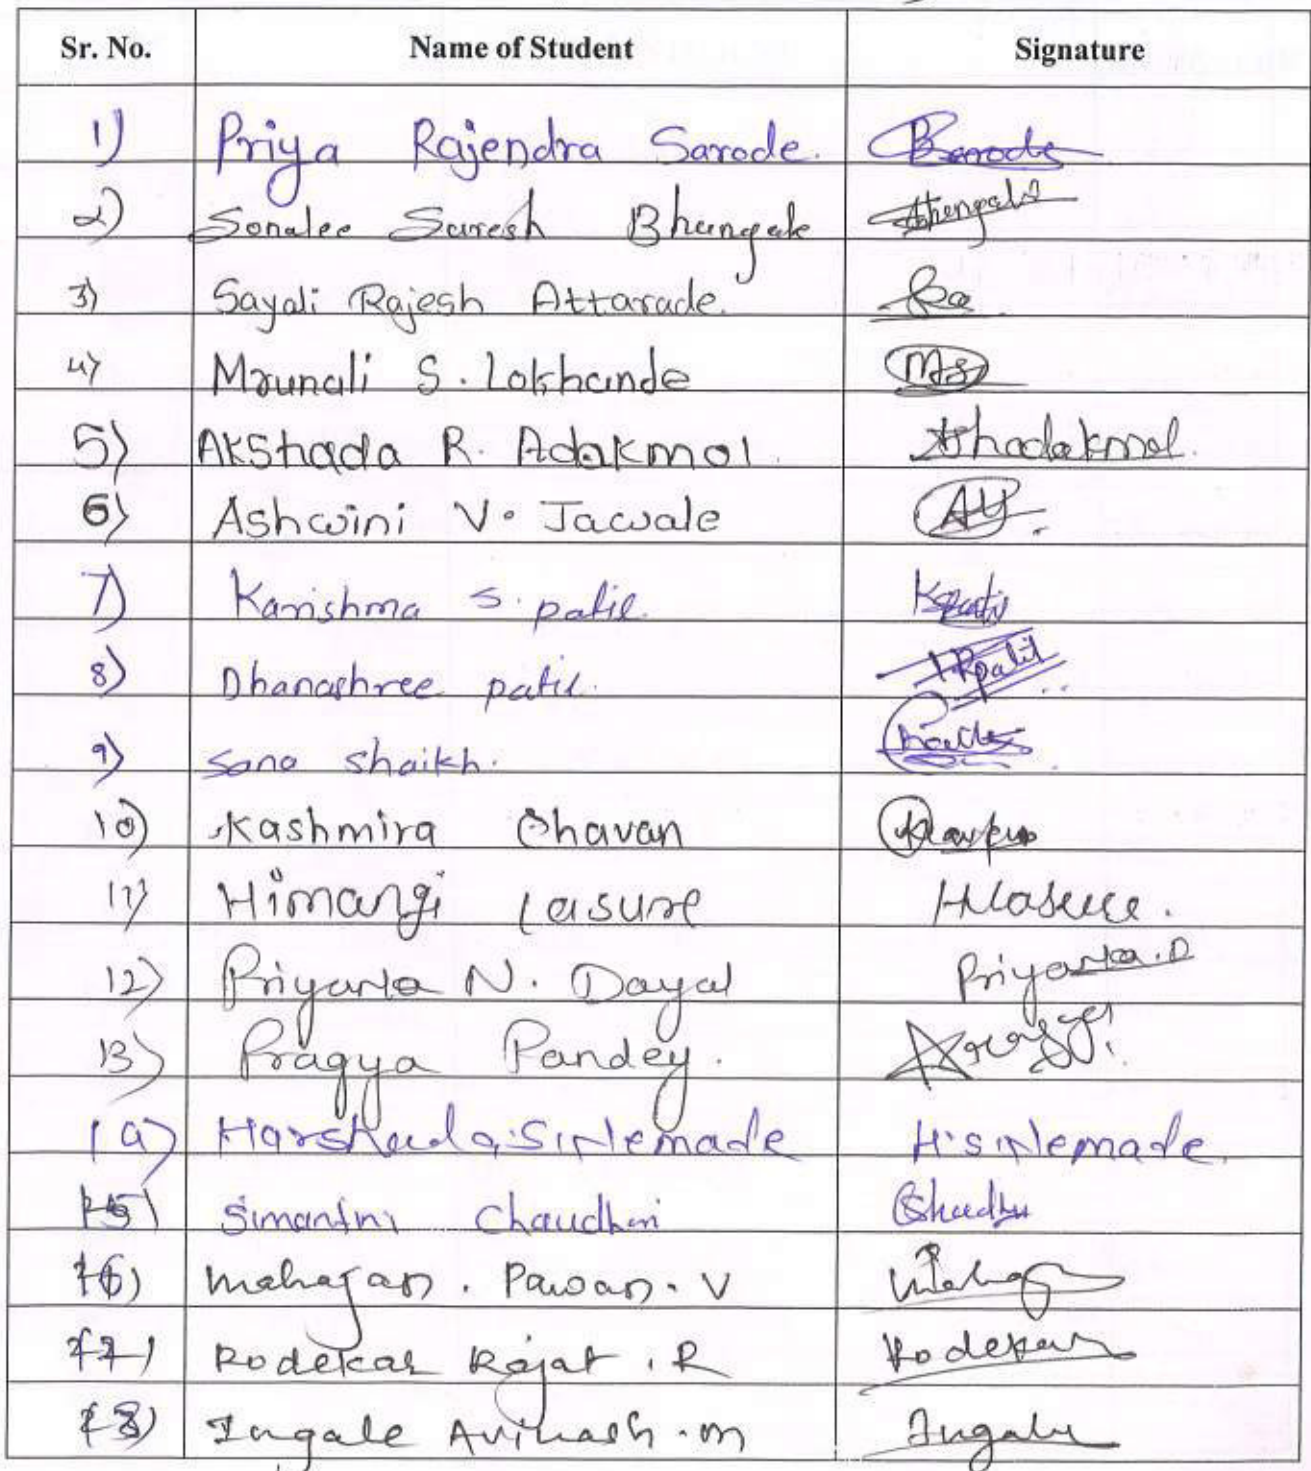 Sr. No. Name of Student Signature
1) Priya Rajendra Sarode. Sarode
2) Sonalee Suresh Bhangale Bhangale
3) Sayali Rajesh Attarade.
4) Mrunali S. Lokhande MS
5) Akshada R. Adakmol. Ahadakmol.
6) Ashwini V. Jawale
7) Karishma S. patil. Kspatil
8) Dhanashree patil. patil
9) sana shaikh.
10) Kashmira Chavan
11) Himangi Lasure HLasure.
12) Priyanka N. Dayal Priyanka.D
13) Pragya Pandey.
14) Harshada.S.Nemade H.S.Nemade.
15) Simantni Chaudhari
16) Mahajan. Pawan. V
17) Rodekar Rajat . R Rodekar
18) Ingale Avinash .m Ingale